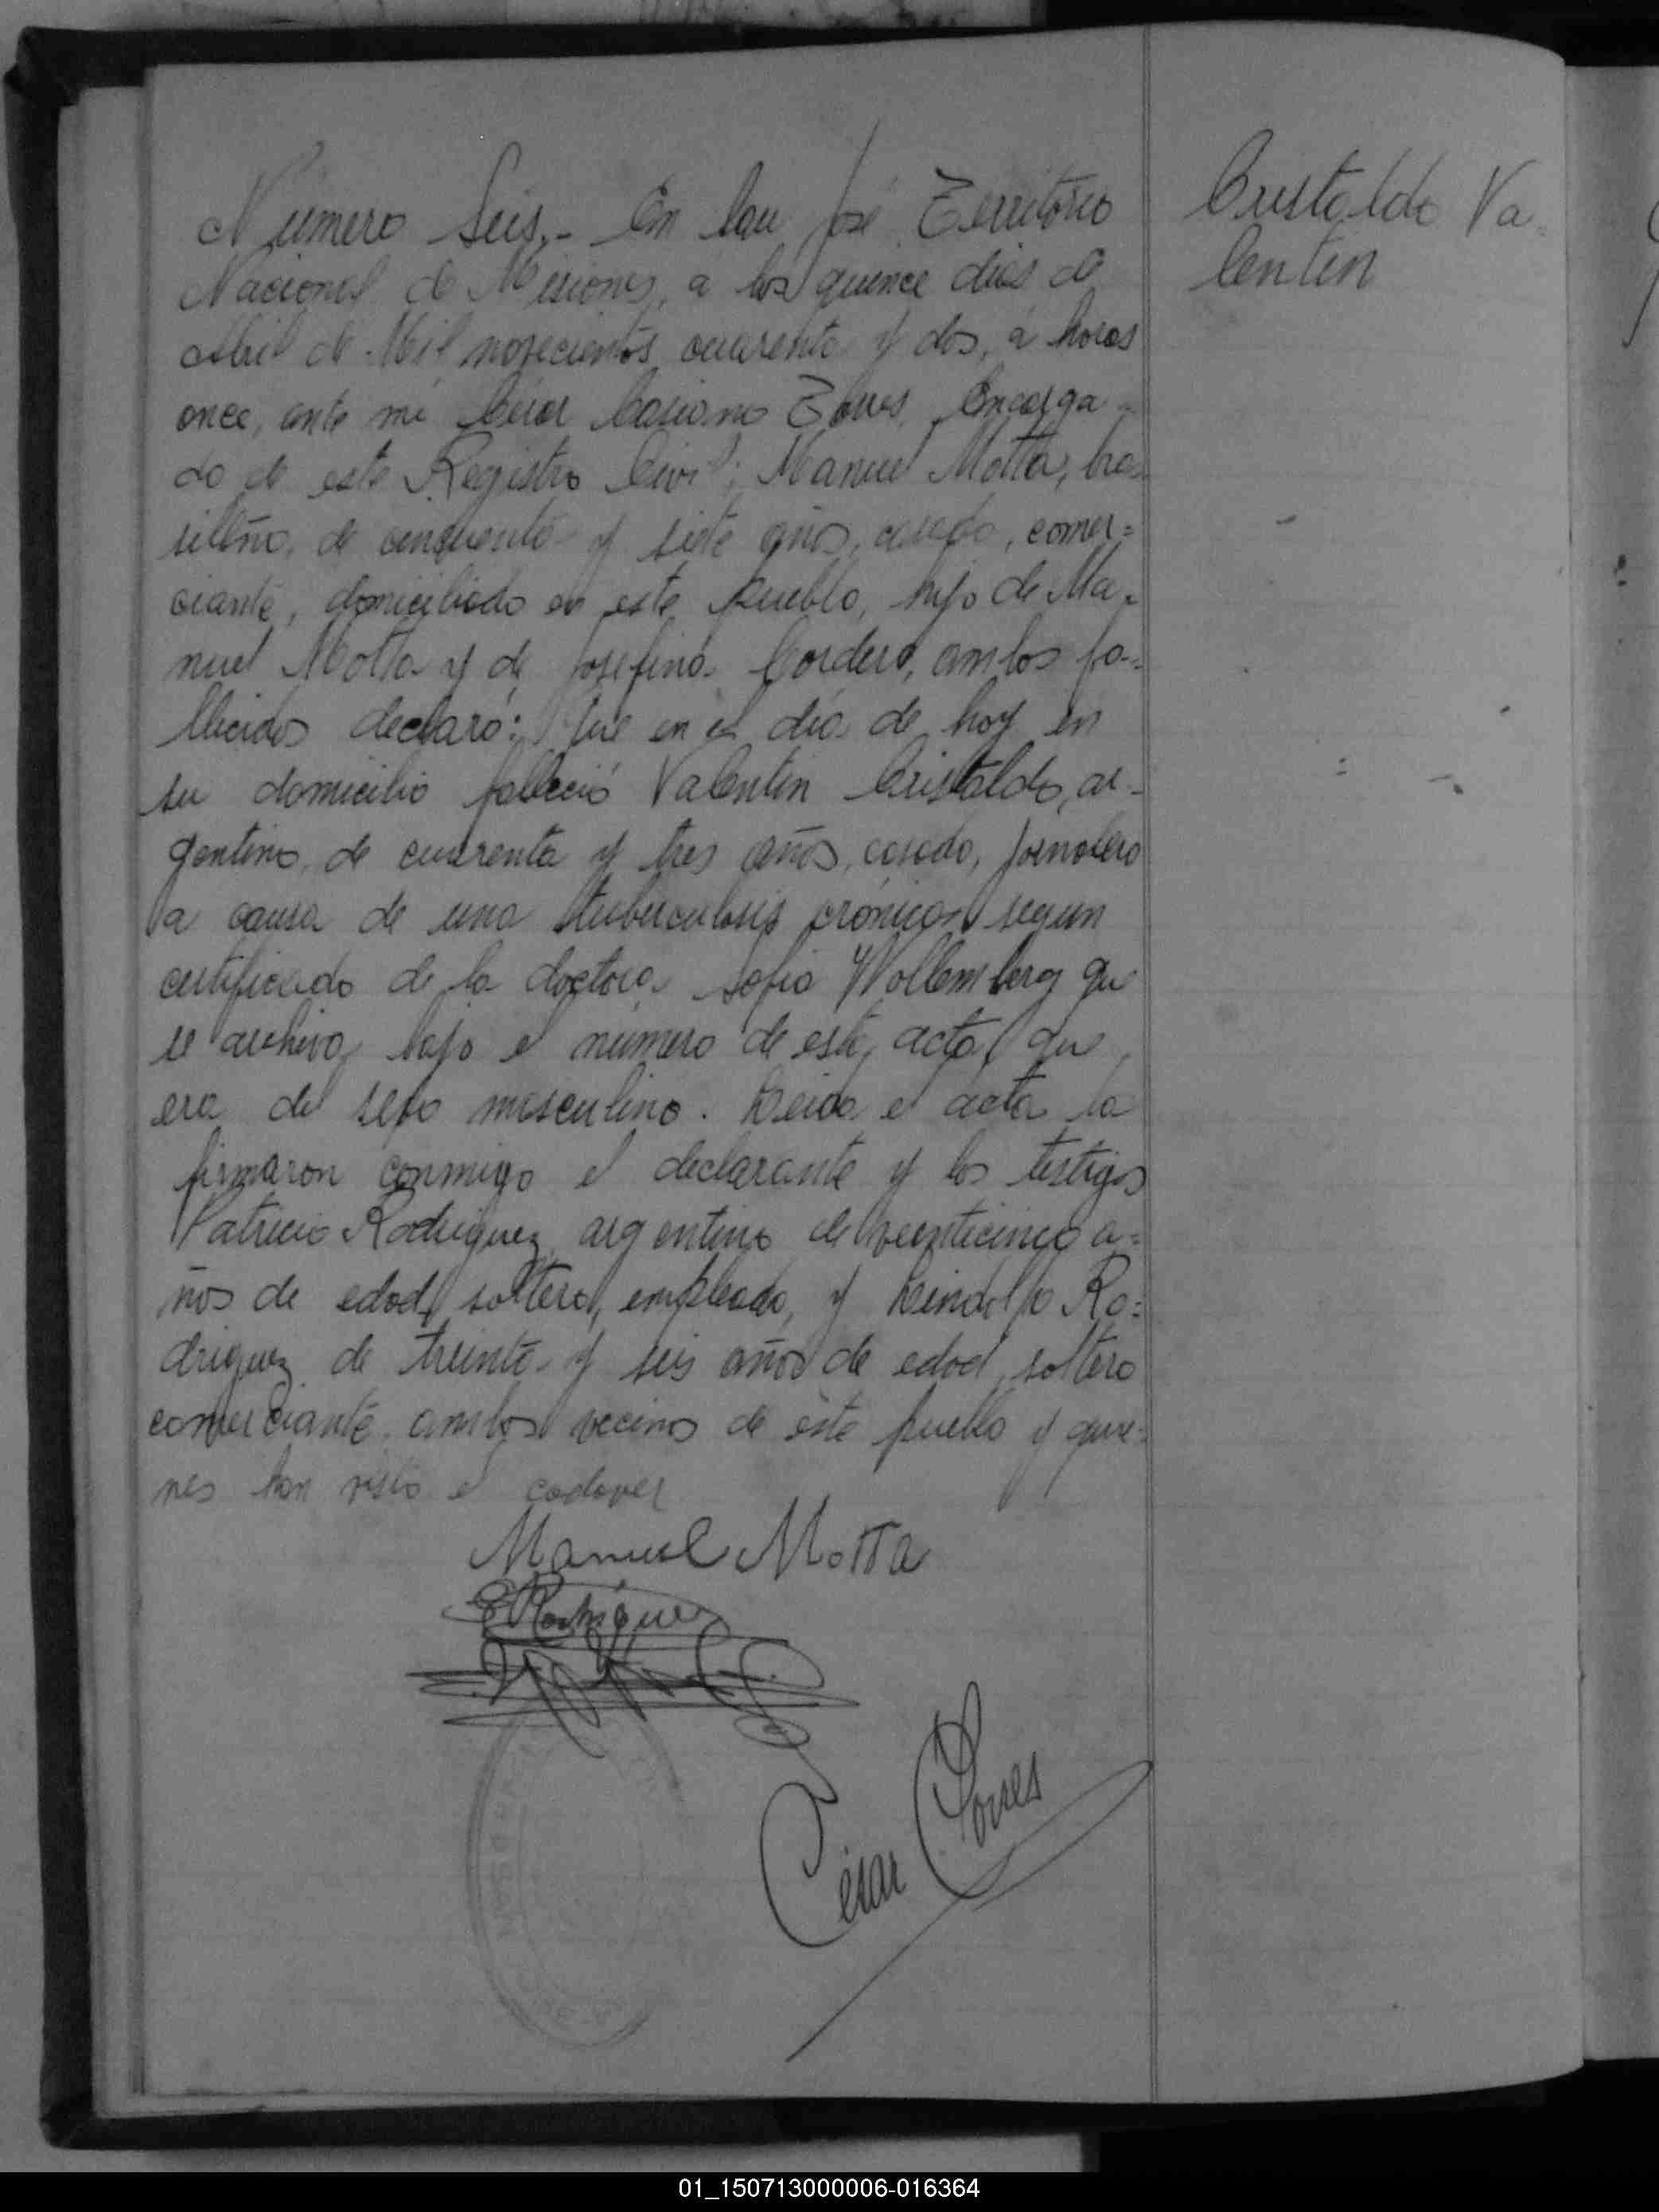 Número Seis.- En San José Territorio
Nacional de Misiones, a los quince días de
Abril de Mil novecientos cuarenta y dos, a horas
once, ante mi César Casiano Torres, Encarga-
do de este Registro Civil; Manuel Motta, bra-
sileño, de cincuenta y siete años, casado, comer=
ciante, domiciliado en este pueblo, hijo de Ma-
nuel Motta y de Josefina Cordero, ambos fa-
llecidos declaró: Que en el día de hoy en
su domicilio falleció Valentin Cristaldo, ar-
gentino, de cuarenta y tres años, casado, jornalero
a causa de una tuberculosis crónica, segun
certificado de la doctora Sofia Wollemberg que
se archiva bajo el número de este acta, que
era del sexo masculino. Leida el acta la
firmaron conmigo el declarante y los testigos
Patricio Rodriguez, argentino de veinticinco a=
ños de edad, soltero, empleado, y Lindolfo Ro=
driguez de treinta y seis años de edad, soltero
comerciante, ambos vecinos de este pueblo y quie-
nes han visto el cadaver
Manuel Motta
Rodríguez
César Torres
Cristaldo Va-
lentin
01_150713000006-016364